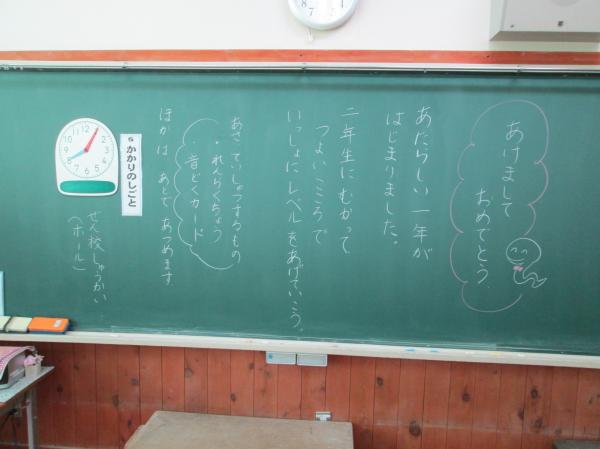 あけまして
おめでとう
あたらしい一年が
はじまりました。
二年生にむかって
つよいこころで
いっしょにレベルをあげていこう。
あさていしゅつするもの
・れんらくちょう
・音どくカード
ほかは、あとであつめます
6 かかりのしごと
ぜん校しゅうかい
(ホール)
12
1
2
3
4
5
6
7
8
9
10
11